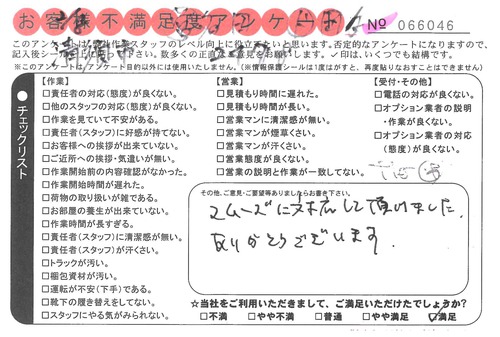 お客様不満足度アンケート
No 066046
このアンケートは弊社作業スタッフのレベル向上に役立てたいと思います。否定的なアンケートになりますので、
記入後シールを貼って下さい。数多くの正直なご意見をお願いします。✓印は、いくつでも結構です。
(※このアンケートは、アンケート目的以外には使用いたしません。)(※情報保護シールは1度はがすと、再度貼りなおすことはできません)
●チェックリスト
【作業】
□責任者の対応(態度)が良くない。
□他のスタッフの対応(態度)が良くない。
□作業を見ていて不安がある。
□責任者(スタッフ)に好感が持てない。
□お客様への挨拶が出来ていない。
□ご近所への挨拶・気遣いが無い。
□作業開始前の内容確認がなかった。
□作業開始時間が遅れた。
□荷物の取り扱いが雑である。
□お部屋の養生が出来ていない。
□作業時間が長すぎる。
□責任者(スタッフ)に清潔感が無い。
□責任者(スタッフ)が汗くさい。
□トラックが汚い。
□梱包資材が汚い。
□運転が不安(下手)である。
□靴下の履き替えをしてない。
□スタッフにやる気がみられない。
【営業】
□見積もり時間に遅れた。
□見積もり時間が長い。
□営業マンに清潔感が無い。
□営業マンが煙草くさい。
□営業マンが汗くさい。
□営業態度が良くない。
□営業の説明と作業が一致してない。
【受付・その他】
□電話の対応が良くない。
□オプション業者の説明
・作業が良くない。
□オプション業者の対応
(態度)が良くない。
その他、ご意見・ご要望等ありましたらお書き下さい。
スムーズに対応して頂けました。
ありがとうございます。
☆当社をご利用いただきまして、ご満足いただけたでしょうか?
□不満 □やや不満 □普通 □やや満足 ☑満足